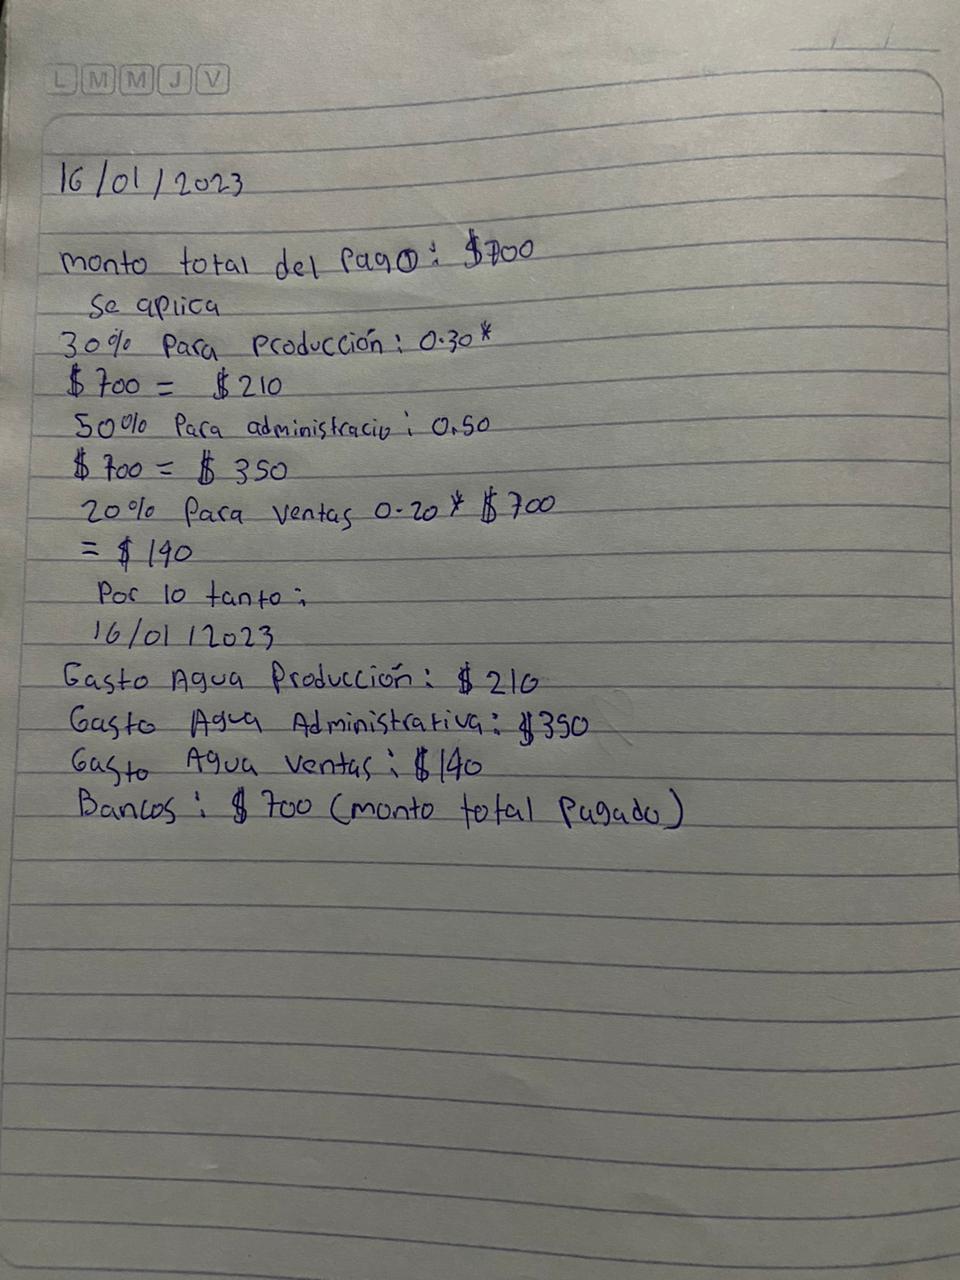 L M M J V
16/01/2023
monto total del Pago: $700
Se aplica
30% Para Producción: 0.30*
$700 = $210
50% Para administracio: 0.50
$ 700 = $ 350
20% Para ventas 0.20 * $700
= $ 140
Por lo tanto:
16/01/2023
Gasto Agua Producción: $ 210
Gasto Agua Administrativa: $350
Gasto Agua ventas: $140
Bancos: $ 700 (monto total Pagado)